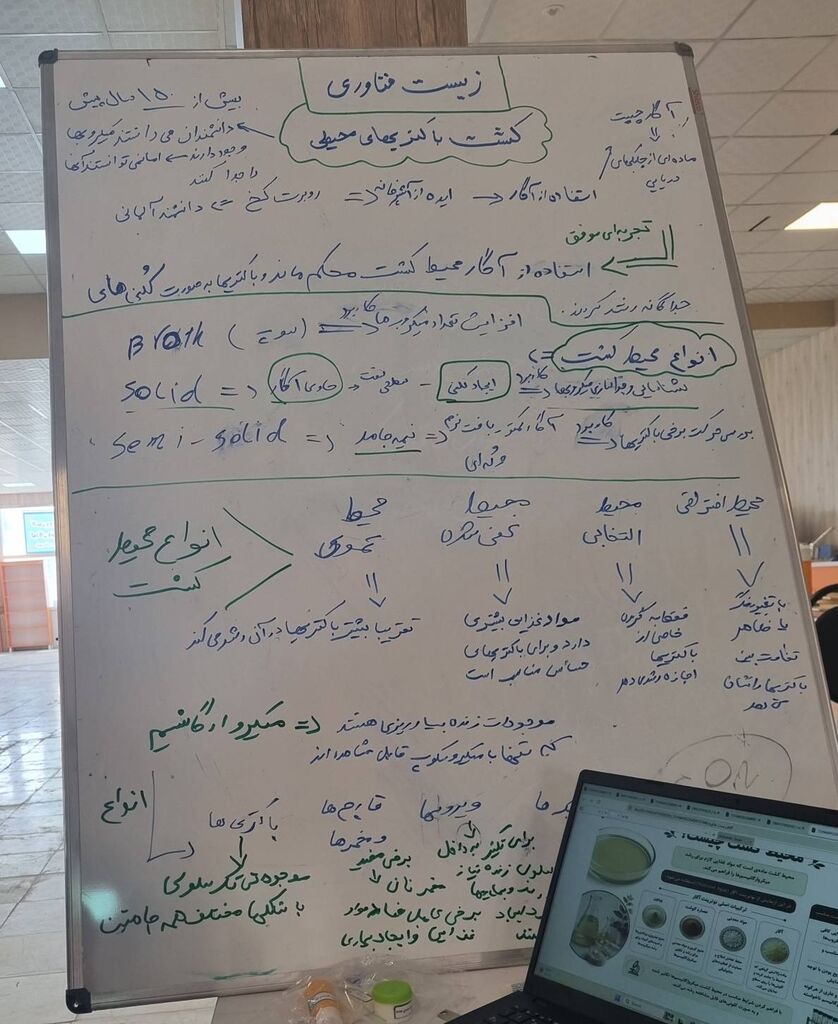 زیست فناوری
کشت باکتریهای محیطی
بیش از ۱۵۰ سال پیش
دانشمندان می دانستند میکروبها
وجود دارند ← اما نمی توانستند آنها
را جدا کنند
آگار چیست؟
ماده ای از جلبکهای
دریایی
استفاده از آگار ← ایده از آشپزخانه ⇐ روبرت کخ ⇐ دانشمند آلمانی
تجربه ای موفق
استفاده از آگار محیط کشت محکم ماند و باکتریها به صورت کُلنی های
جداگانه رشد کردند.
انواع محیط کشت ⇐
Broth (بروث) ⇐ کاربرد افزایش تعداد میکروب ها
Solid ⇐ حاوی آگار - ایجاد کلنی ⇐ کاربرد شناسایی و جداسازی میکروبها
Semi-solid ⇐ نیمه جامد ⇐ آگار کمتر بافت نرم ژله ای ⇐ کاربرد بررسی حرکت برخی باکتریها
انواع محیط
کشت
محیط افتراقی
محیط
انتخابی
محیط
غنی شده
محیط
عمومی
با تغییر رنگ
یا ظاهر
تفاوت بین
باکتریها را نشان
می دهد
فقط به گروه
خاصی از
باکتریها
اجازه رشد می دهد
مواد غذایی بیشتری
دارد و برای باکتریهای
حساس مناسب است
تقریبا بیشتر باکتریها در آن رشد می کنند
میکروارگانیسم ⇐ موجودات زنده بسیار ریزی هستند
که تنها با میکروسکوپ قابل مشاهده اند
انواع
باکتری ها
قارچ ها
و مخمرها
ویروسها
موجودات تک سلولی
با شکلهای مختلف همه جا هستند
برخی مفید
مخمر نان
برخی عامل فساد مواد
غذایی و ایجاد بیماری
برای تکثیر به داخل
سلول زنده نیاز
محیط کشت چیست؟